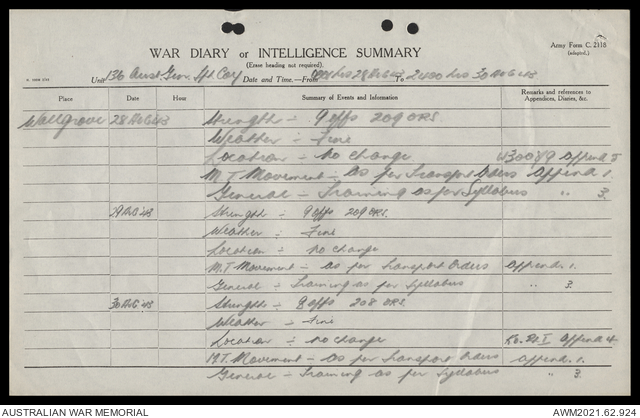 Army Form C. 2118
(adapted.)
WAR DIARY or INTELLIGENCE SUMMARY
(Erase heading not required).
Unit 136 Aust. Gen. Tpt Coy Date and Time.—From hrs 28 AUG 43 To 2400 hrs 30 AUG 43
Place Date Hour Summary of Events and Information Remarks and references to Appendices, Diaries, &c.
Wallgrove 28 AUG 43 Strength :- 9 offs 209 ORS.
Weather :- Fine
Location :- No change W3008/9 append 5
M.T Movement :- as per Transport Orders Append 1.
General :- Training as per Syllabus " 3.
29 AUG 43 Strength :- 9 offs 209 ORS.
Weather :- Fine
Location :- No change
M.T Movement :- as per Transport Orders append. 1.
General :- Training as per Syllabus " 3.
30 AUG 43 Strength :- 8 offs 208 ORS.
Weather :- Fine
Location :- No change append 4
M.T. Movement :- as per Transport Orders append. 1.
General :- Training as per Syllabus " 3
AUSTRALIAN WAR MEMORIAL AWM2021.62.924